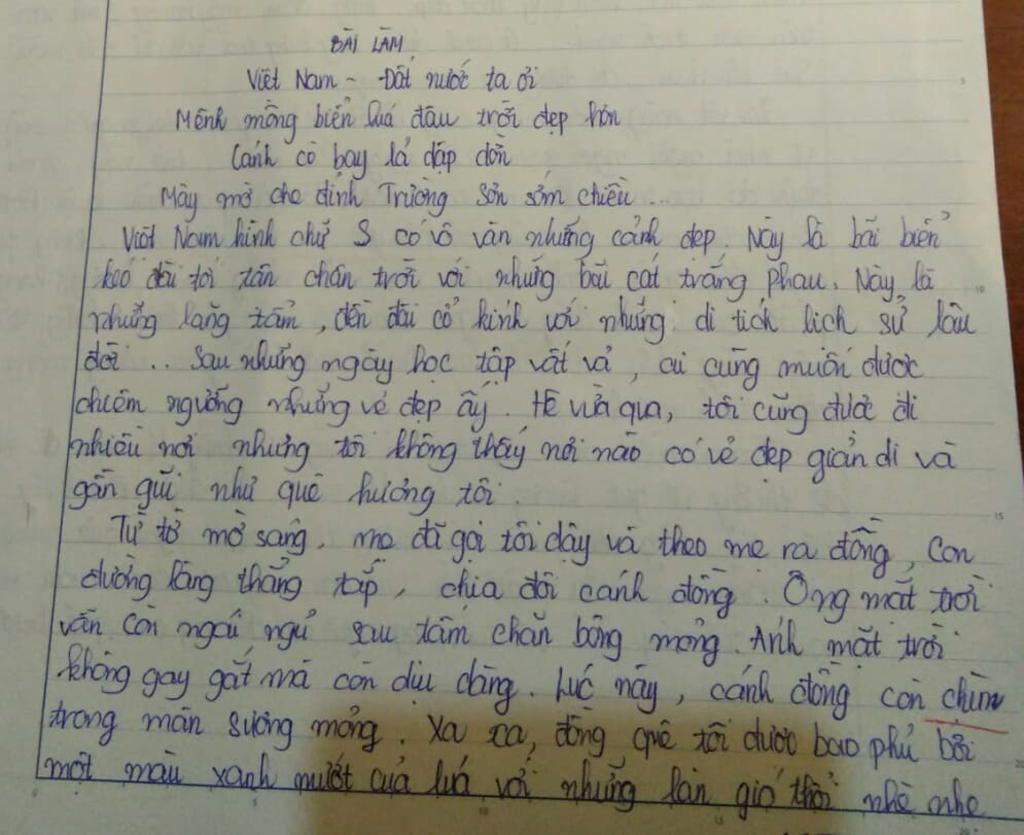 BÀI LÀM
Việt Nam - Đất nước ta ơi
Mênh mông biển lúa đâu trời đẹp hơn
Cánh cò bay lả dập dờn
Mây mờ che đỉnh Trường Sơn sớm chiều...
Việt Nam hình chữ S có vô vàn những cảnh đẹp. Này là bãi biển
kéo dài tới tận chân trời với những bãi cát trắng phau. Này là
những lăng tẩm, đền đài cổ kính với những di tích lịch sử lâu
đời... Sau những ngày học tập vất vả, ai cũng muốn được
chiêm ngưỡng những vẻ đẹp ấy. Hè vừa qua, tôi cũng được đi
nhiều nơi nhưng tôi không thấy nơi nào có vẻ đẹp giản dị và
gần gũi như quê hương tôi
Tự tờ mờ sáng, mẹ đã gọi tôi dậy và theo mẹ ra đồng, Con
đường làng thẳng tắp, chia đôi cánh đồng. Ông mặt trời
vẫn còn ngái ngủ sau tấm chăn bông mỏng. Ánh mặt trời
không gay gắt mà còn dịu dàng. Lúc này, cánh đồng còn chìm
trong màn sương mỏng. Xa xa, đồng quê tôi được bao phủ bởi
một màu xanh mướt của lúa với những làn gió thổi nhè nhẹ